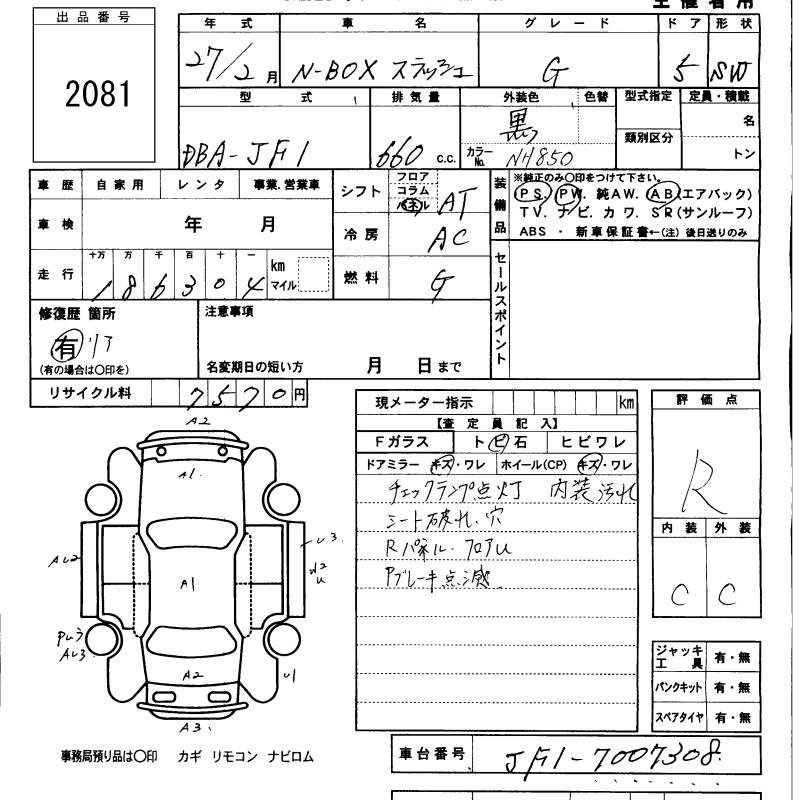 主催者用
出品番号
2081
年式 車名 グレード ドア 形状
27/2月 N-BOX スラッシュ G 5 SW
型式 排気量 外装色 色替 型式指定 定員・積載
DBA-JF1 660 c.c. 黒 カラーNo. NH850 類別区分 名 トン
車歴 自家用 レンタ 事業.営業車
車検 年 月
走行 十万 万 千 百 十 一 km マイル
186304
シフト フロア コラム パネル AT
冷房 AC
燃料 G
装備品 ※純正のみ〇印をつけて下さい。
PS. PW. 純AW. AB(エアバック)
TV. ナビ. カワ. SR(サンルーフ)
ABS ・ 新車保証書←(注) 後日送りのみ
セールスポイント
修復歴 箇所 注意事項
有 リア
(有の場合は〇印を) 名変期日の短い方 月 日まで
リサイクル料 7570円
現メーター指示 km
【査定員記入】
Fガラス トビ石 ヒビワレ
ドアミラー キズ・ワレ ホイール(CP) キズ・ワレ
チェックランプ点灯 内装汚れ
シート破れ、穴
Rパネル・フロアU
Pブレーキ点滅
評価点
R
内装 外装
C C
A2
A1
AU2 A1 U3
U
PU3
AU3
A2 U1
A3
ジャッキ工具 有・無
パンクキット 有・無
スペアタイヤ 有・無
事務局預り品は〇印 カギ リモコン ナビロム
車台番号 JF1-7007308